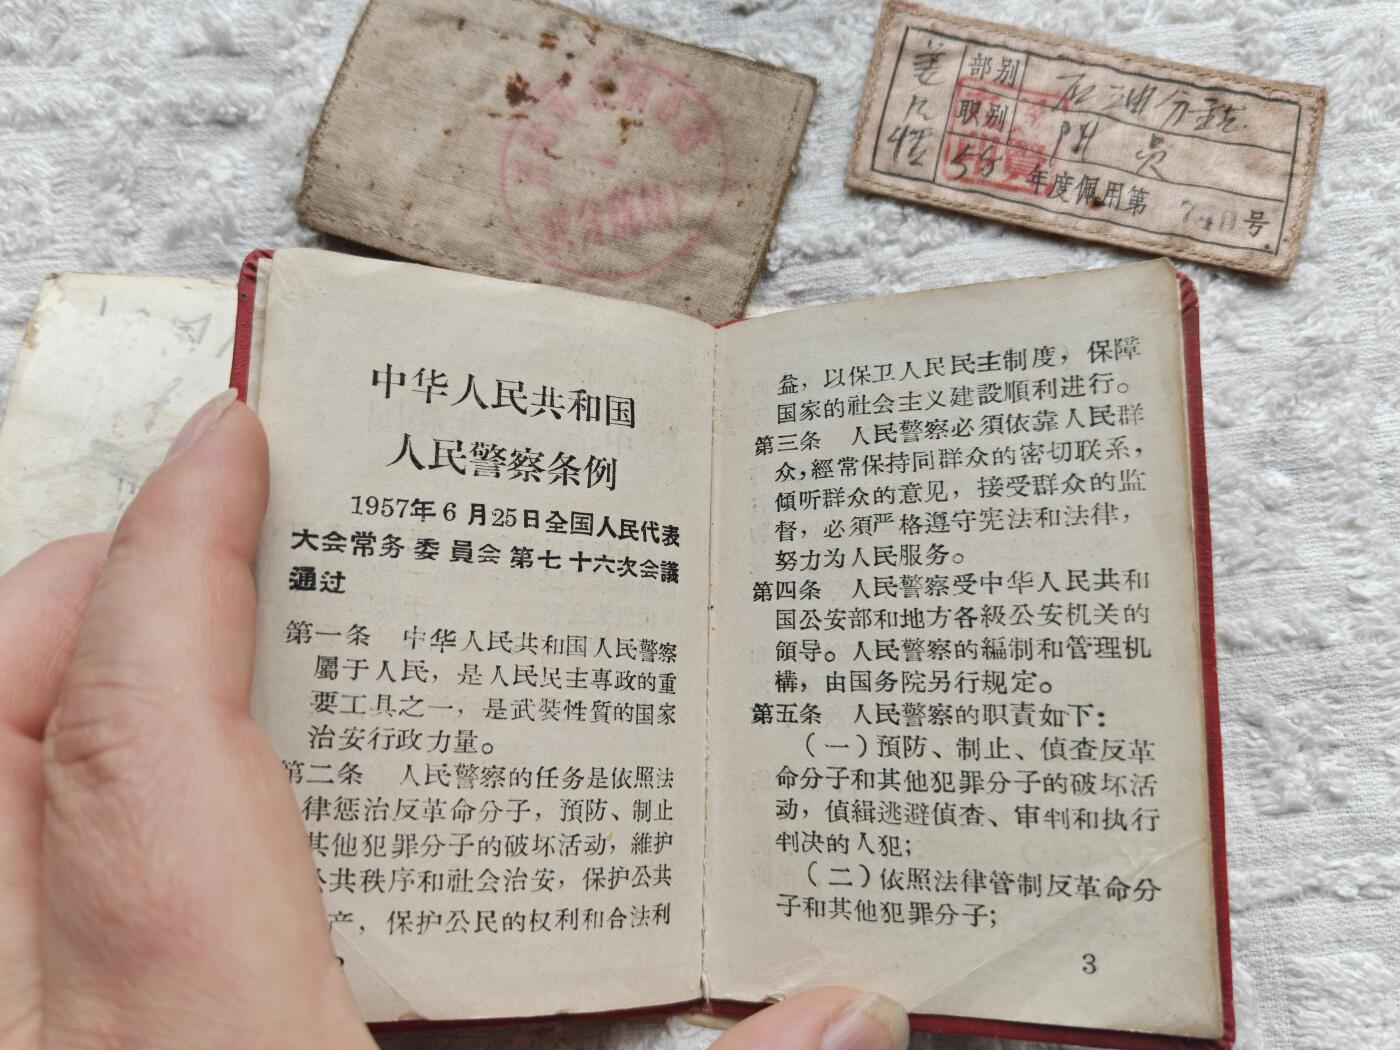 部别 石油分
职别 员
年度佩用第 号
中华人民共和国
人民警察条例
1957年6月25日全国人民代表
大会常务委員会第七十六次会議
通过
第一条 中华人民共和国人民警察
屬于人民，是人民民主專政的重
要工具之一，是武裝性質的国家
治安行政力量。
第二条 人民警察的任务是依照法
律惩治反革命分子，預防、制止
其他犯罪分子的破坏活动，維护
公共秩序和社会治安，保护公共
产，保护公民的权利和合法利
益，以保卫人民民主制度，保障
国家的社会主义建設順利进行。
第三条 人民警察必須依靠人民群
众，經常保持同群众的密切联系，
傾听群众的意见，接受群众的监
督，必須严格遵守宪法和法律，
努力为人民服务。
第四条 人民警察受中华人民共和
国公安部和地方各級公安机关的
領导。人民警察的編制和管理机
構，由国务院另行规定。
第五条 人民警察的职責如下：
（一）預防、制止、偵查反革
命分子和其他犯罪分子的破坏活
动，偵緝逃避偵查、审判和执行
判决的人犯；
（二）依照法律管制反革命分
子和其他犯罪分子；
3